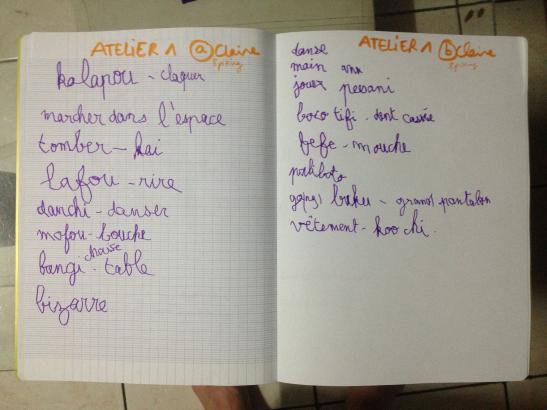 ATELIER 1 a Claire
kalapou - claquer
marcher dans l'espace
tomber - kai
lafou - rire
danchi - danser
mofou - bouche
chaise
bangi - table
bizarre
ATELIER 1 b Claire
danse
main
jouer peesani
boco tifi - dent cassée
fefe - mouche
buku - grand pantalon
vêtement - koo chi.